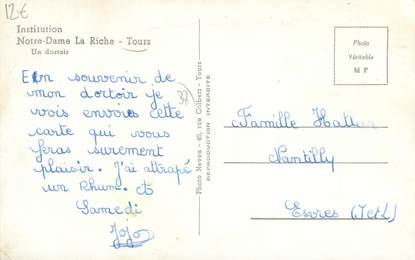 12€
Institution
Notre-Dame La Riche - Tours
Un dortoir
En souvenir de
mon dortoir je
vois envoies cette
carte qui vous
feras surement
plaisir. J'ai attrapé
un Rhum. et
Samedi
Jojo
37
Photo Nevres - 40, rue Colbert - Tours
REPRODUCTION INTERDITE
Photo
Véritable
M P
Famille
Nantilly
Esvres (I.et.L)